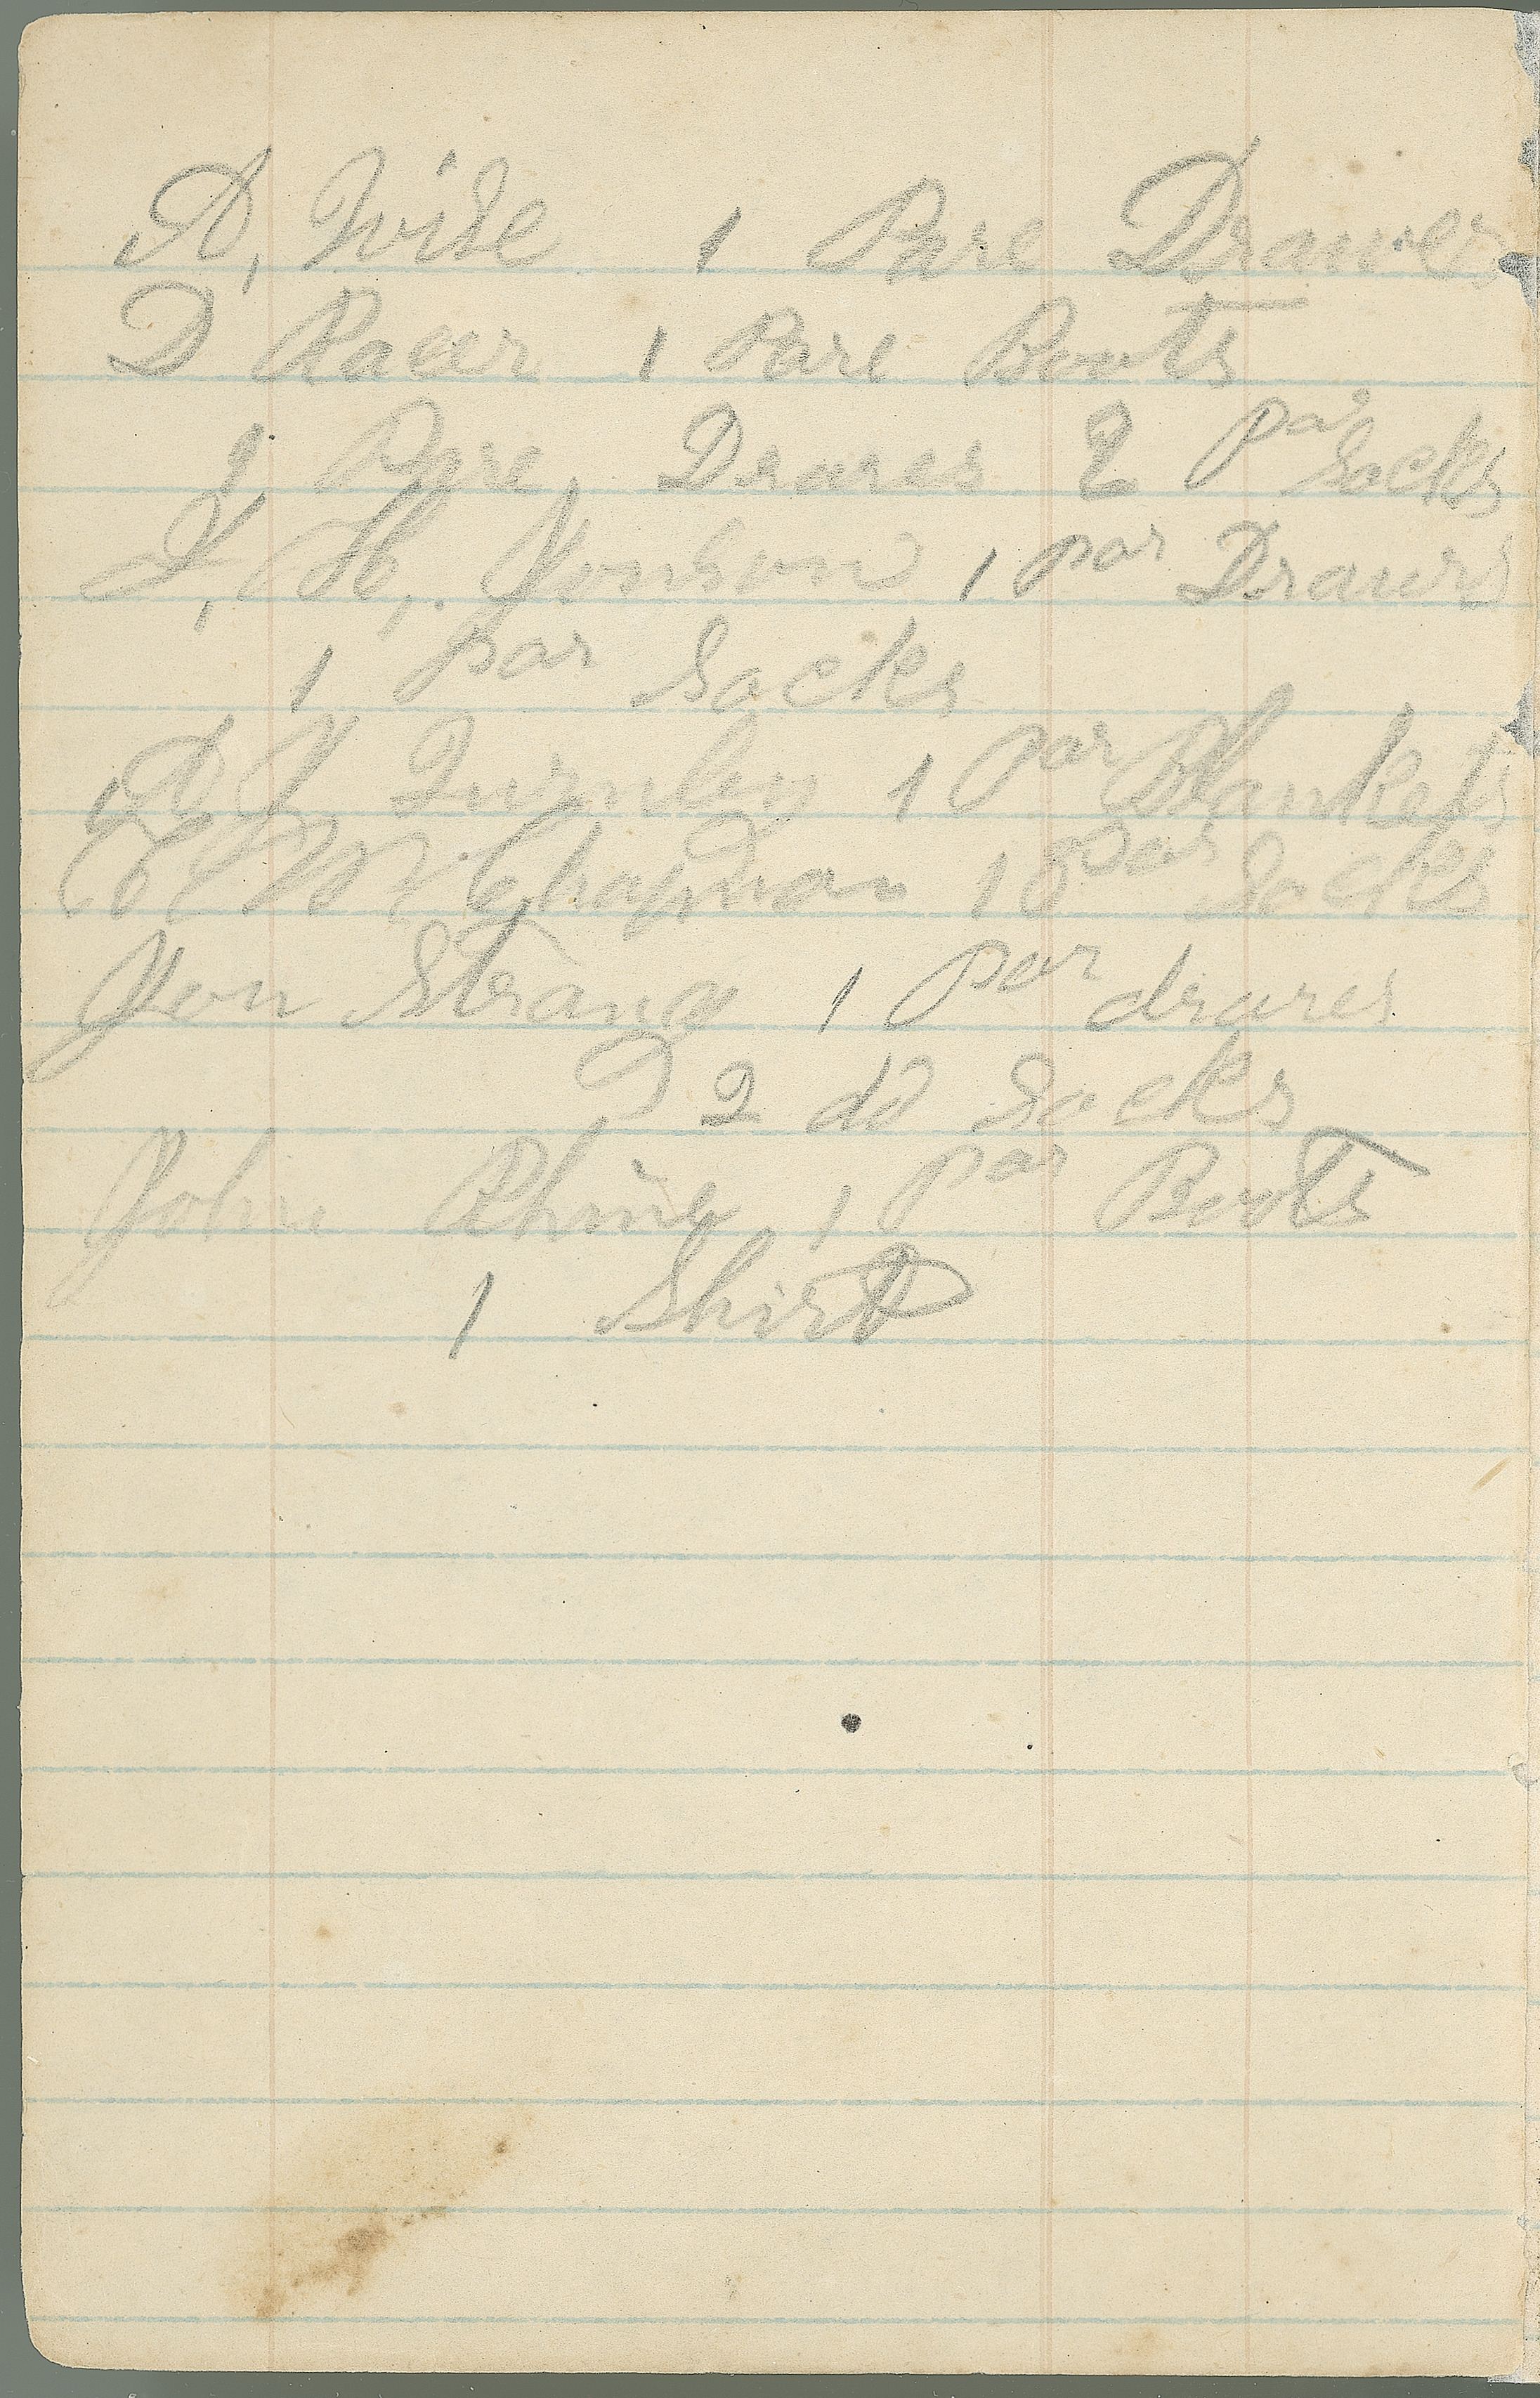 A, Wise 1 Pare Drawers
D Racer 1 Pare Boots
1 Pare Drares 2 par Socks
J, H, Jonson 1 par Drawrs
1 par Socks
A J Turnley 1 par Blankets
Chapman 1 par Socks
Jon Strang 1 par drares
2 do Socks
John Rhine 1 par Boots
1 Shirt